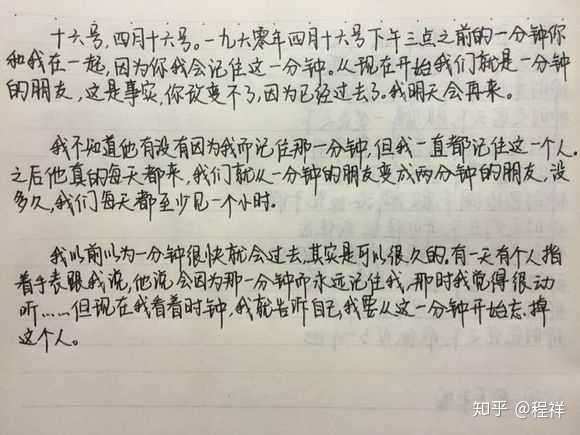 十六号,四月十六号。一九六零年四月十六号下午三点之前的一分钟你
和我在一起,因为你我会记住这一分钟。从现在开始我们就是一分钟
的朋友,这是事实,你改变不了,因为已经过去了。我明天会再来。
我不知道他有没有因为我而记住那一分钟,但我一直都记住这一个人。
之后他真的每天都来,我们就从一分钟的朋友变成两分钟的朋友,没
多久,我们每天都至少见一个小时。
我以前以为一分钟很快就会过去,其实是可以很久的。有一天有个人指
着手表跟我说,他说会因为那一分钟而永远记住我,那时我觉得很动
听……但现在我看着时钟,我就告诉自己,我要从这一分钟开始忘掉
这个人。
知乎 @程祥